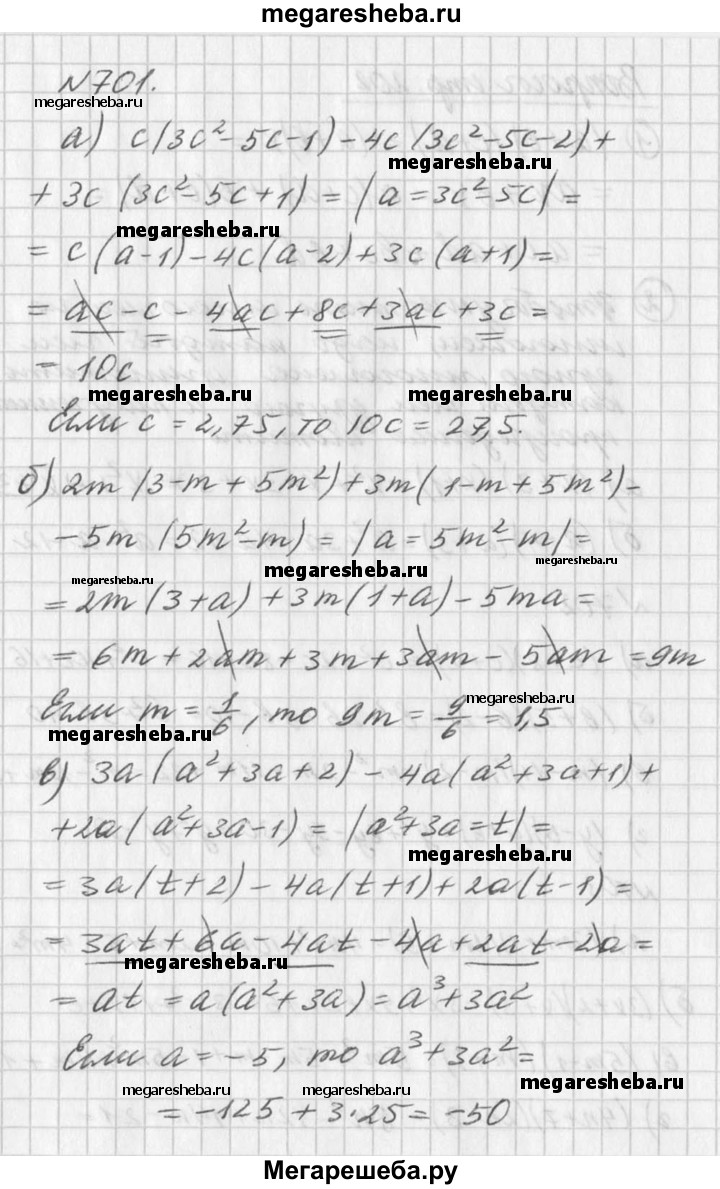 megaresheba.ru
N701.
megaresheba.ru
а) c(3c²-5c-1)-4c(3c²-5c-2)+
megaresheba.ru
+3c(3c²-5c+1)=|a=3c²-5c|=
megaresheba.ru
=c(a-1)-4c(a-2)+3c(a+1)=
=ac-c-4ac+8c+3ac+3c=
=10c
megaresheba.ru megaresheba.ru
Если c=2,75, то 10c=27,5.
б) 2m(3-m+5m²)+3m(1-m+5m²)-
-5m(5m²-m)=|a=5m²-m|=
megaresheba.ru
megaresheba.ru
megaresheba.ru
=2m(3+a)+3m(1+a)-5ma=
=6m+2am+3m+3am-5am=9m
megaresheba.ru
Если m=1/6, то 9m=9/6=1,5
megaresheba.ru
в) 3a(a²+3a+2)-4a(a²+3a+1)+
+2a(a²+3a-1)=|a²+3a=t|=
megaresheba.ru
=3a(t+2)-4a(t+1)+2a(t-1)=
=3at+6a-4at-4a+2at-2a=
megaresheba.ru
=at=a(a²+3a)=a³+3a²
Если a=-5, то a³+3a²=
megaresheba.ru
megaresheba.ru megaresheba.ru
=-125+3·25=-50
Мегарешеба.ру